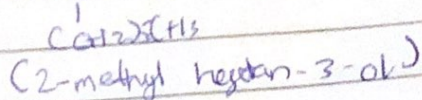 (CH2)2CH3
(2-methyl heptan-3-ol)